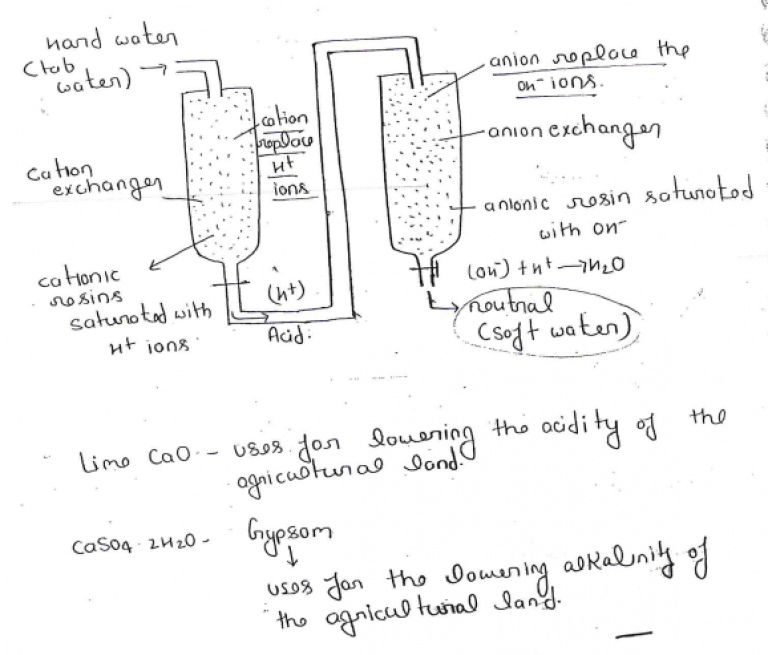 hard water
(tab
water)
cation
replace
H+
ions
cation
exchanger
cationic
resins
saturated with
H+ ions
(H+)
Acid.
anion replace the
OH- ions.
anion exchanger
anionic resin saturated
with OH-
(OH-) + H+ → H2O
neutral
(soft water)
Lime CaO - uses for lowering the acidity of the
agricultural land.
CaSO4·2H2O - Gypsom
↓
uses for the lowering alkalnity of
the agricultural land.